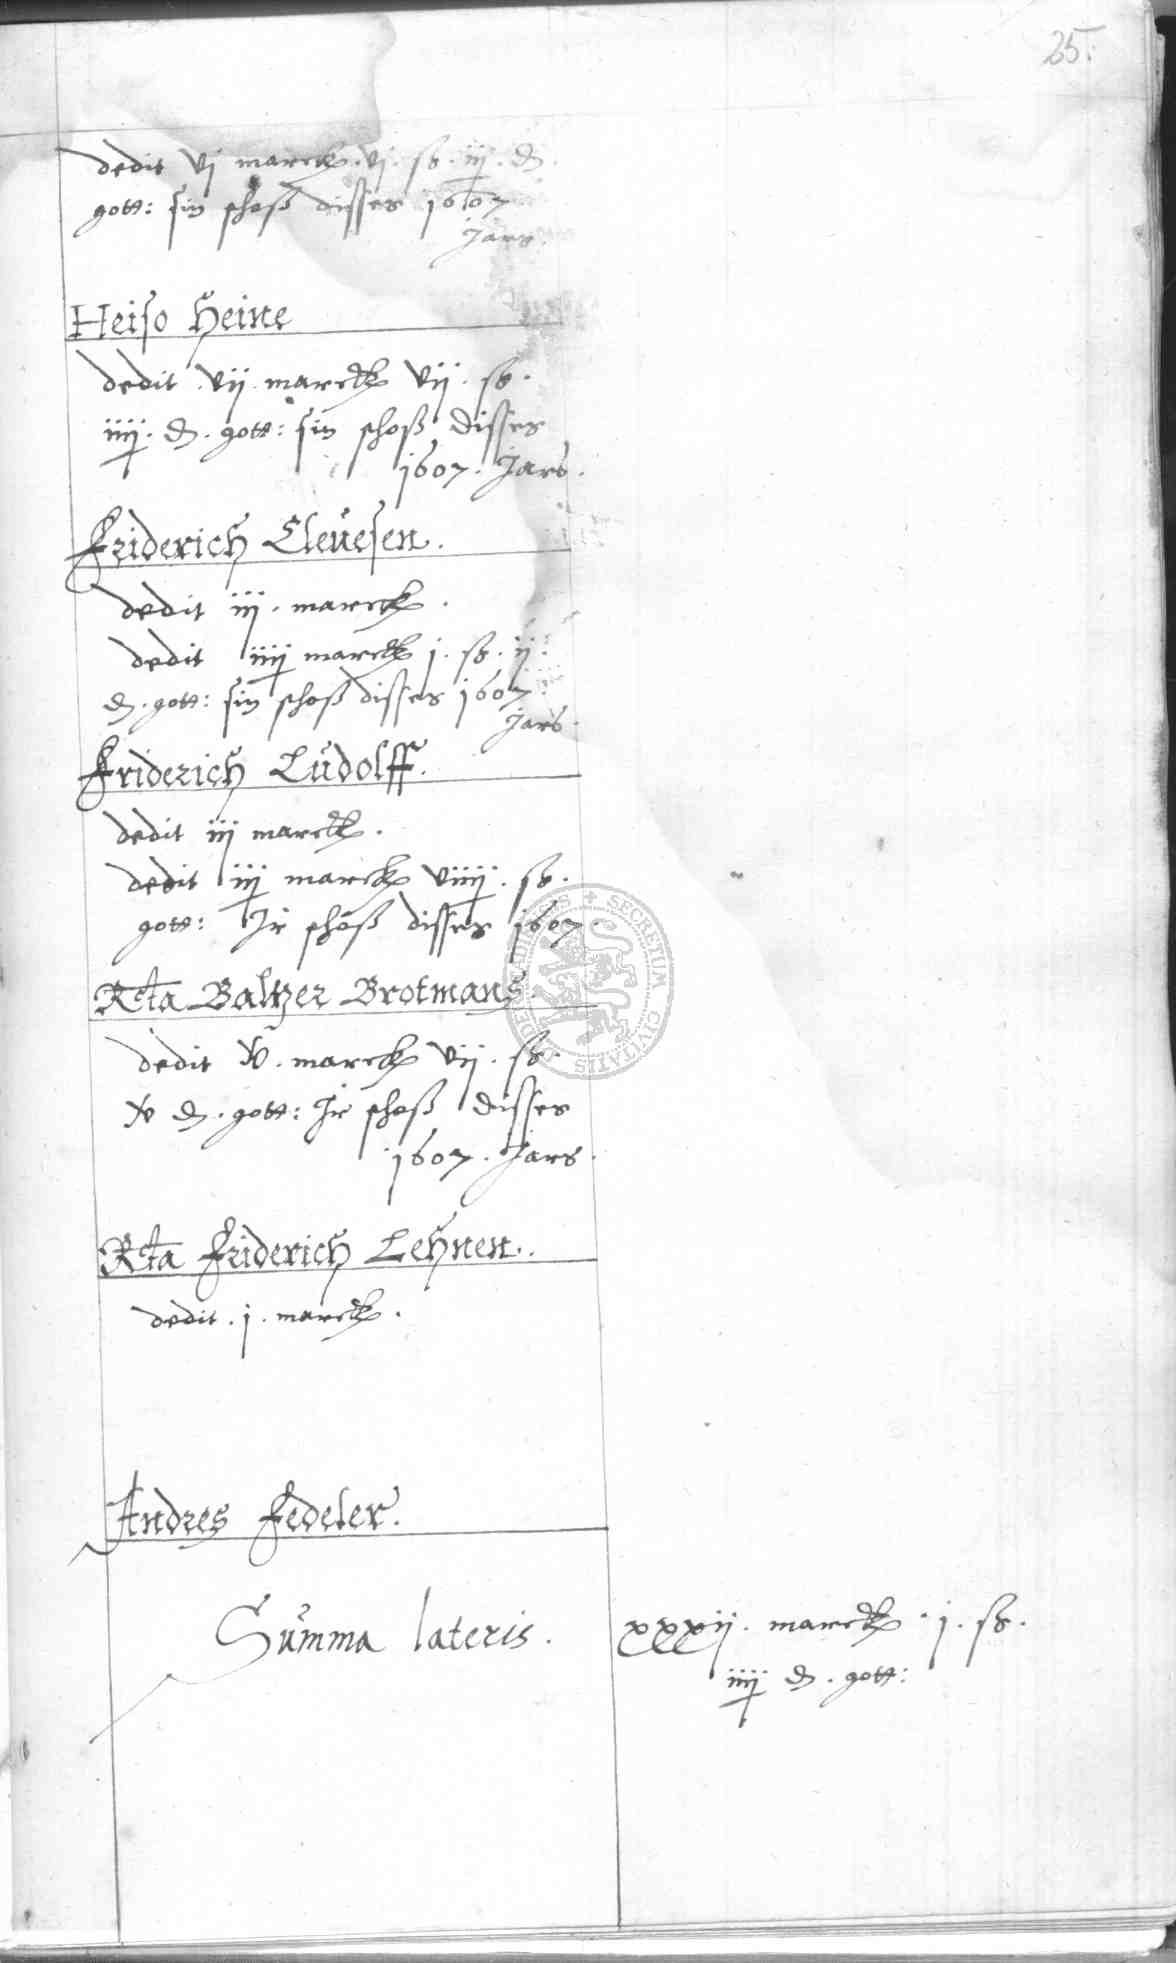 25.
dedit vj marck. vj. ß. iij. ₰
gott: sin schoß disses 1607
Jars.
Heiso Heine
dedit. vij. marck vij. ß.
iiij. ₰. gott: sin schoß disses
1607. Jars.
Friderich Cleuesen.
dedit iij. marck.
dedit iiij marck j. ß. ij.
₰. gott: sin schoß disses 1607
Jars.
Friderich Ludolff.
dedit iij marck.
dedit iij marck viiij. ß.
gott: Jr schoß disses 1607.
Rcta Baltzer Brotmans
dedit v. marck vij. ß.
v ₰. gott: Jr schoß disses
1607. Jars.
Rcta Friderich Lehnen.
dedit. j. marck.
Andres Fedeler.
Summa lateris. xxxij. marck. j. ß.
iiij ₰. gott:
SECRETUM CIVITATIS